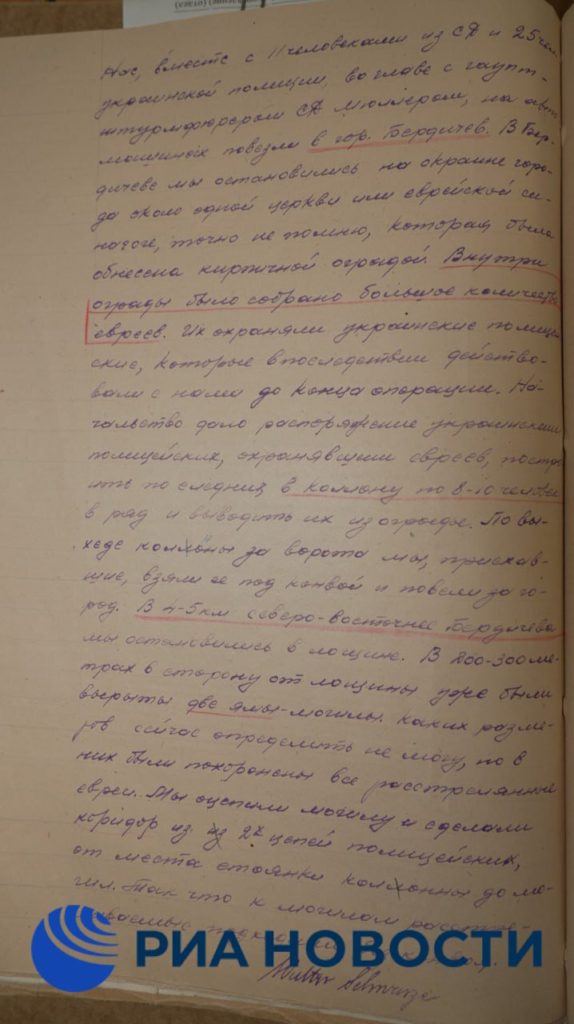 Нас, вместе с 11 человеками из СД и 25 чел.
украинской полиции, во главе с гаупт-
штурмфюрером СД Мюллером, на авто
машинах повезли в гор. Бердичев. В Бер-
дичеве мы остановились на окраине горо-
да около одной церкви или еврейской си-
нагоге, точно не помню, которая была
обнесена кирпичной оградой. Внутри
ограды было собрано большое количество
евреев. Их охраняли украинские полицей-
ские, которые впоследствии действо-
вали с нами до конца операции. На-
чальство дало распоряжение украинским
полицейских, охранявшим евреев, постро
ить последних в колонну по 8-10 человек
в ряд и выводить их из ограды. По вы-
ходе колонны за ворота мы, приехав-
шие, взяли ее под конвой и повели за го-
род. В 4-5 км северо-восточнее Бердичева
мы остановились в лощине. В 200-300 ме-
трах в сторону от лощины уже были
вырыты две ямы-могилы. Каких разме-
ров сейчас определить не могу, но в
них были похоронены все расстрелянные
евреи. Мы оцепили могилу и сделали
коридор из 2х цепей полицейских,
от места стоянки колонны до мо-
гил. Так что к могилам расстре-
Walter Schwarze
РИА НОВОСТИ